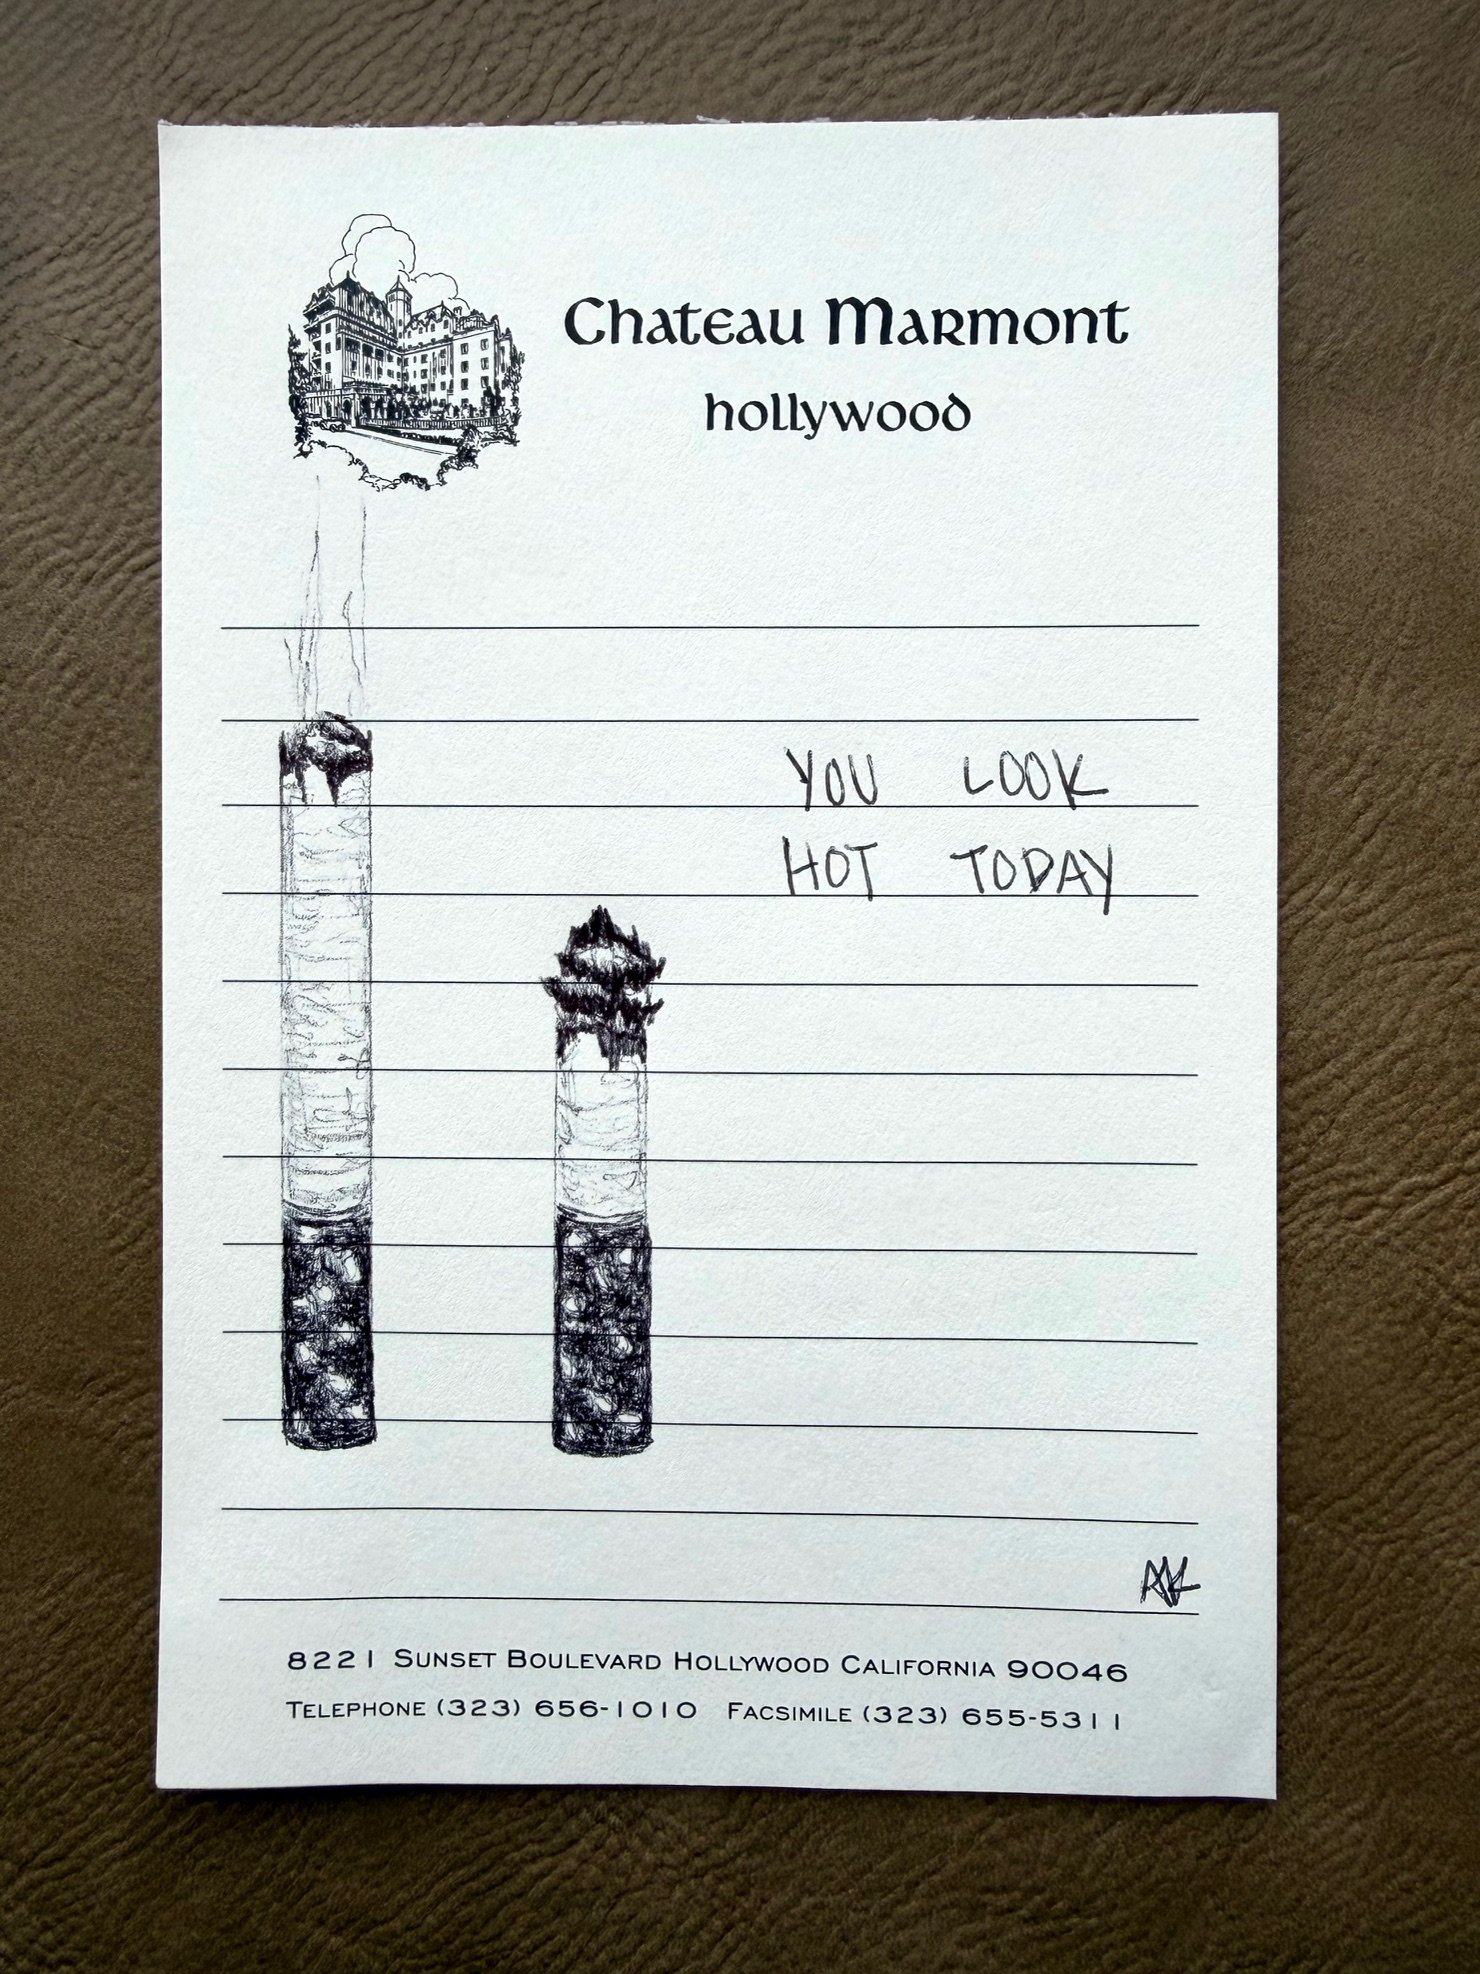 Chateau Marmont
hollywood
YOU LOOK
HOT TODAY
8221 Sunset Boulevard Hollywood California 90046
Telephone (323) 656-1010 Facsimile (323) 655-5311